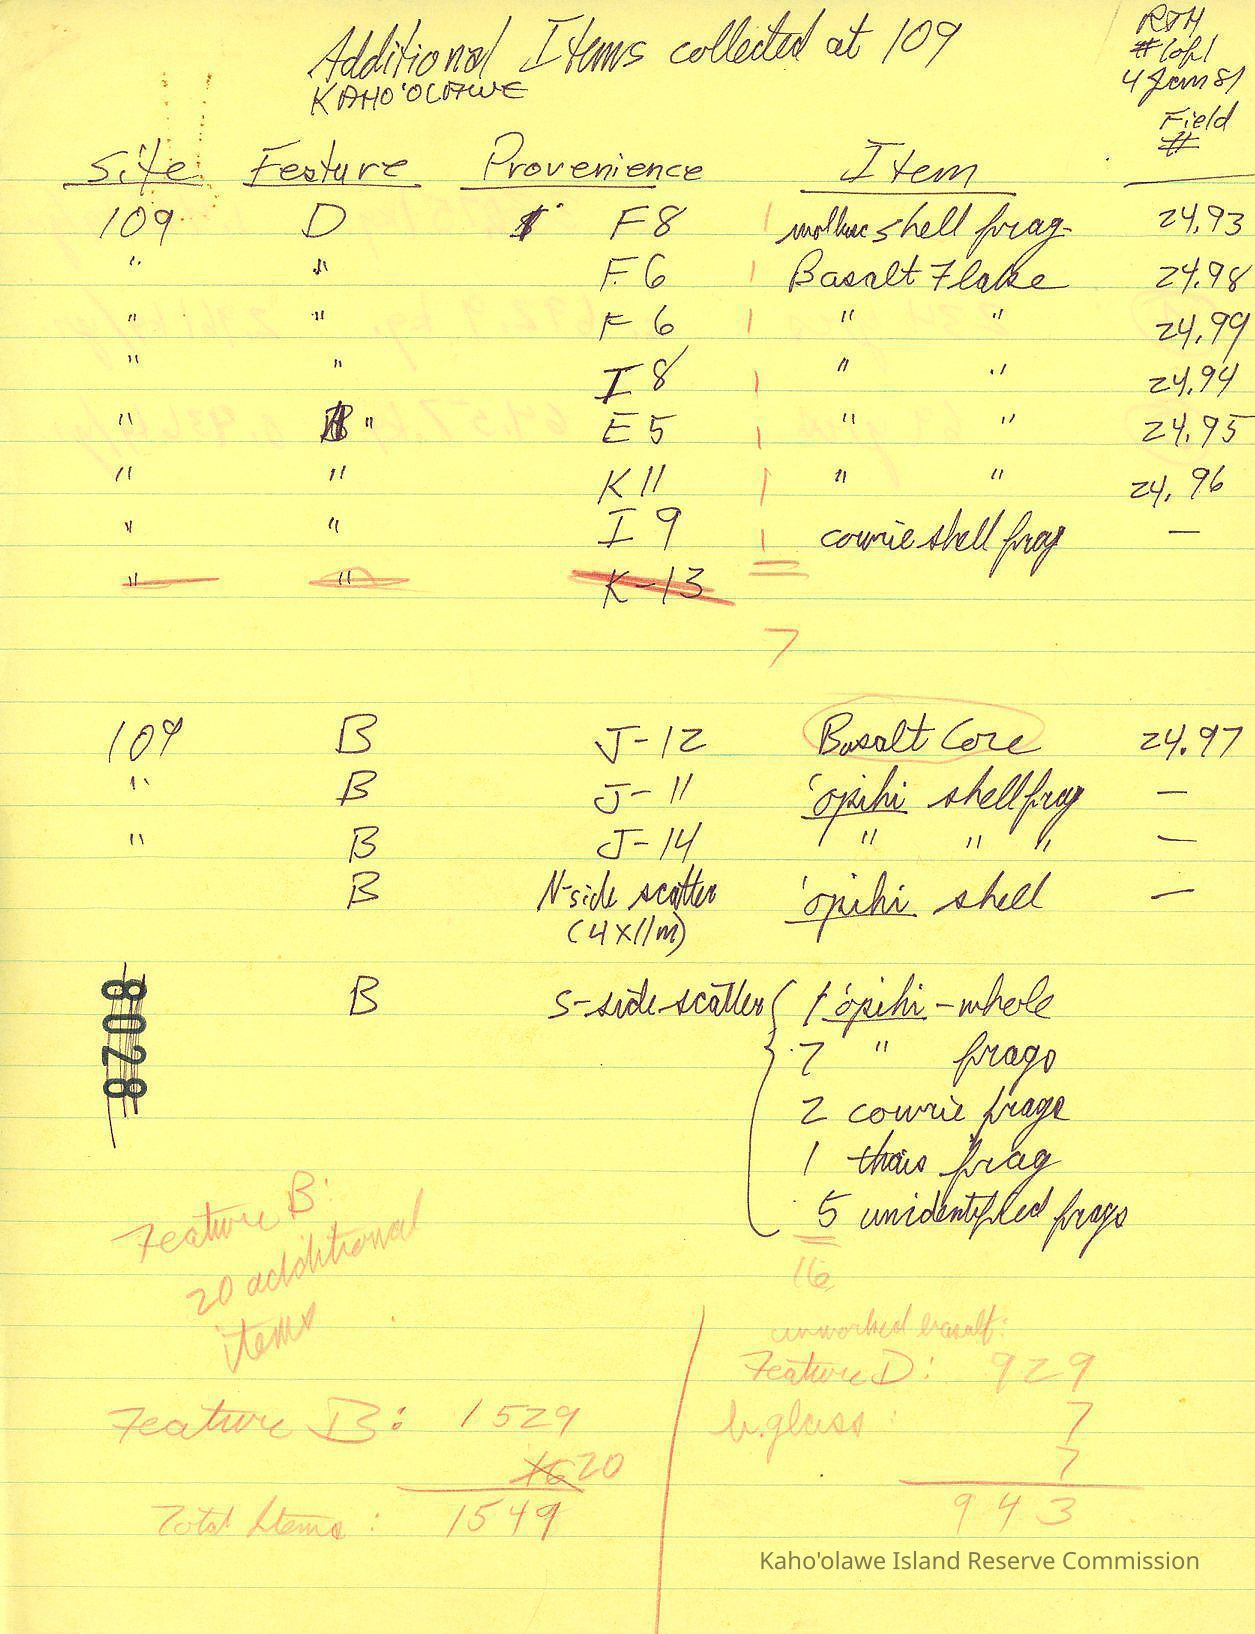 Additional Items collected at 109
KAHO'OLAWE
RJH
# 1 of 1
4 Jan 81
Site Feature Provenience Item Field #
109 D F8 1 mollusc shell frag. 24.93
" " F6 1 Basalt Flake 24.98
" " F6 1 " " 24.99
" " I8 1 " " 24.94
" " E5 1 " " 24.95
" " K11 1 " " 24.96
" " I9 1 cowrie shell frag —
" " K-13
7
109 B J-12 Basalt Core 24.97
" B J-11 'opihi shell frag —
" B J-14 " " " —
B N-side scatter 'opihi shell —
(4x11m)
B S-side-scatter { 1 'opihi - whole
7 " frags
2 cowrie frags
1 thais frag
5 unidentified frags
16
8028
Feature B:
20 additional
items
Feature B: 1529
16 20
Total Items: 1549
unworked basalt:
Feature D: 929
v.glass: 7
7
943
Kaho'olawe Island Reserve Commission